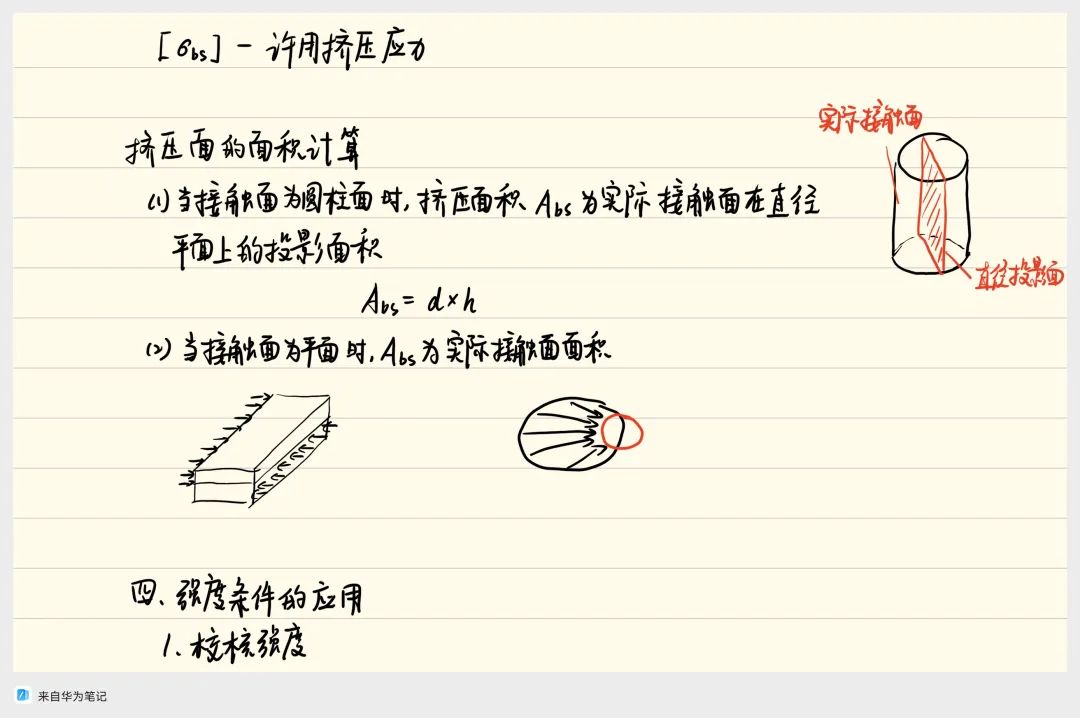 [σbs] — 许用挤压应力
挤压面的面积计算
实际接触面
(1) 当接触面为圆柱面时, 挤压面积 Abs 为实际接触面在直径
平面上的投影面积
直径投影面
Abs = d×h
(2) 当接触面为平面时, Abs 为实际接触面面积
四、强度条件的应用
1、校核强度
来自华为笔记